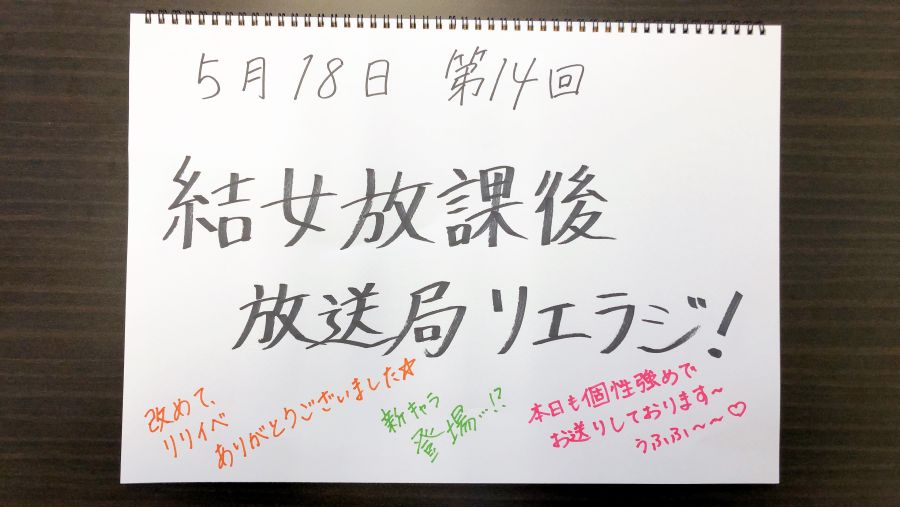 5月18日 第14回
結女放課後
放送局リエラジ!
改めて、
リリイベ
ありがとうございました☆
新キャラ
登場…!?
本日も個性強めで
お送りしております〜
うふふ〜〜♡